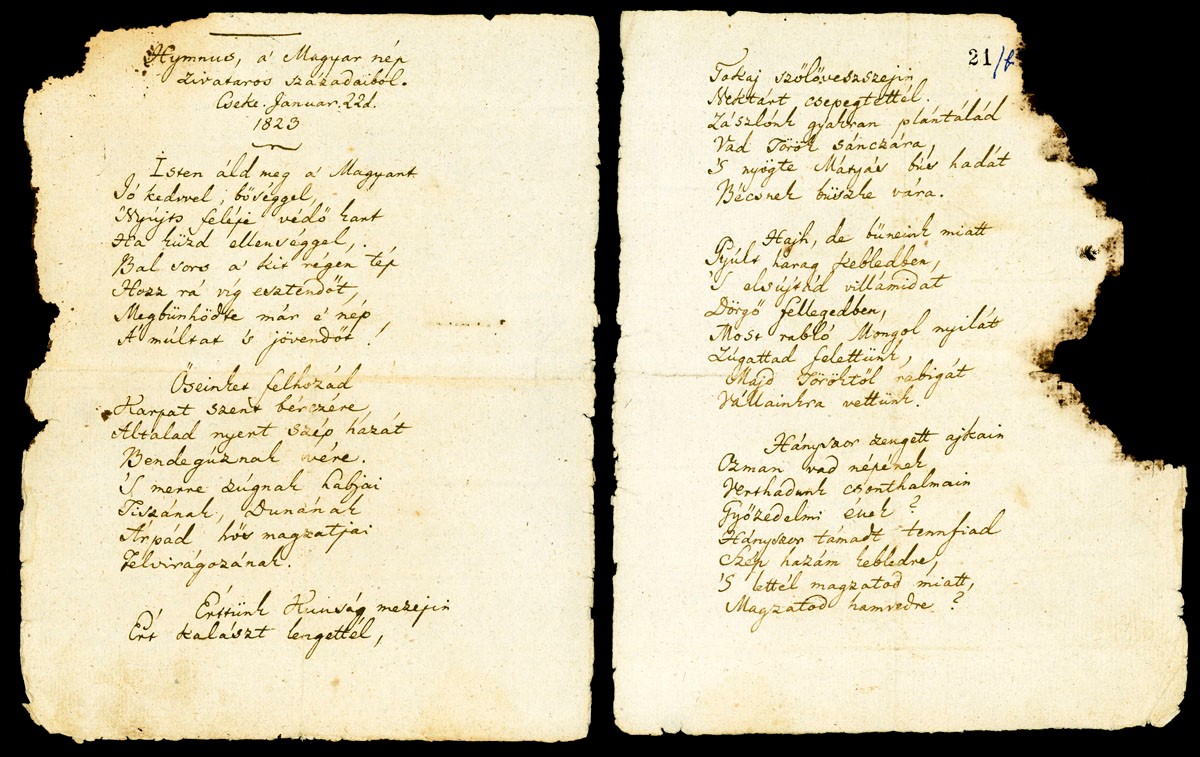 Hymnus, a' Magyar nép
zivataros századaiból.
Cseke. Januar. 22d.
1823
Isten áld meg a' Magyart
Jó kedvvel, bőséggel,
Nyújts feléje védő kart
Ha küzd ellenséggel,
Bal sors a' kit régen tép
Hozz rá víg esztendőt,
Megbünhödte már e' nép
A' múltat 's jövendőt!
Őseinket felhozád
Kárpát szent bérczére,
Általad nyert szép hazát
Bendegúznak vére.
'S merre zúgnak habjai
Tiszának, Dunának
Árpád hős magzatjai
Felvirágozának.
Értünk Kunság mezejin
Ért kalászt lengettél,
21/b
Tokaj szőlővesszejin
Nektárt csepegtettél.
Zászlónk gyakran plántálád
Vad Török sánczára,
'S nyögte Mátyás bús hadát
Bécsnek büszke vára.
Hajh, de büneink miatt
Gyúlt harag kebledben,
'S elsújtád villámidat
Dörgő fellegedben,
Most rabló Mongol nyilát
Zúgattad felettünk,
Majd Töröktől rabigát
Vállainkra vettünk.
Hányszor zengett ajkain
Ozman vad népének
Vert hadunk csonthalmain
Győzedelmi ének?
Hányszor támadt tennfiad
Szép hazám kebledre,
'S lettél magzatod miatt,
Magzatod hamvedre?